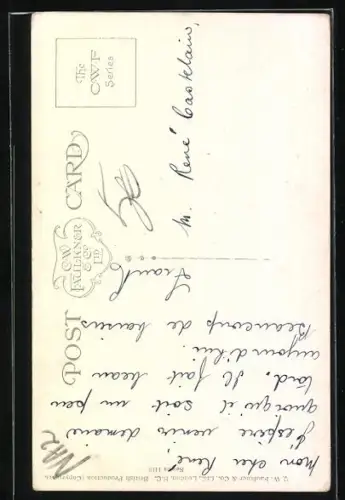 POST CARD
C.W. FAULKNER & Co LTD
The
C.W.F
Series
Mon cher René
J'espère venir demain
quoi qu'il soit un peu
tard. Il fait beau
aujourd'hui.
Beaucoup de baisers
Frank
M. René Castelain,
C. W. Faulkner & Co., Ltd., London, E.C. British Production (Copyright).